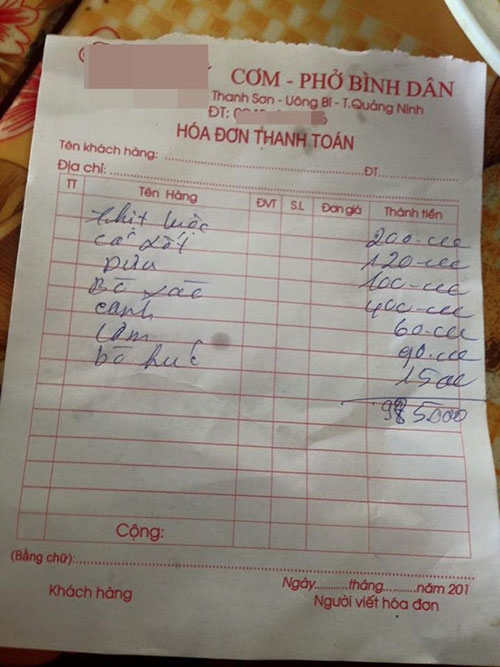 CƠM - PHỞ BÌNH DÂN
Thanh Sơn - Uông Bí - T.Quảng Ninh
ĐT:
HÓA ĐƠN THANH TOÁN
Tên khách hàng: ĐT
Địa chỉ:
TT Tên Hàng ĐVT S.L Đơn giá Thành tiền
thịt luộc 200.000
120.000
Dứa 100.000
Bò xào 400.000
canh 60.000
cơm 90.000
bò húc 15000
985.000
Cộng:
(Bằng chữ):
Ngày.........tháng.........năm 201
Khách hàng Người viết hóa đơn